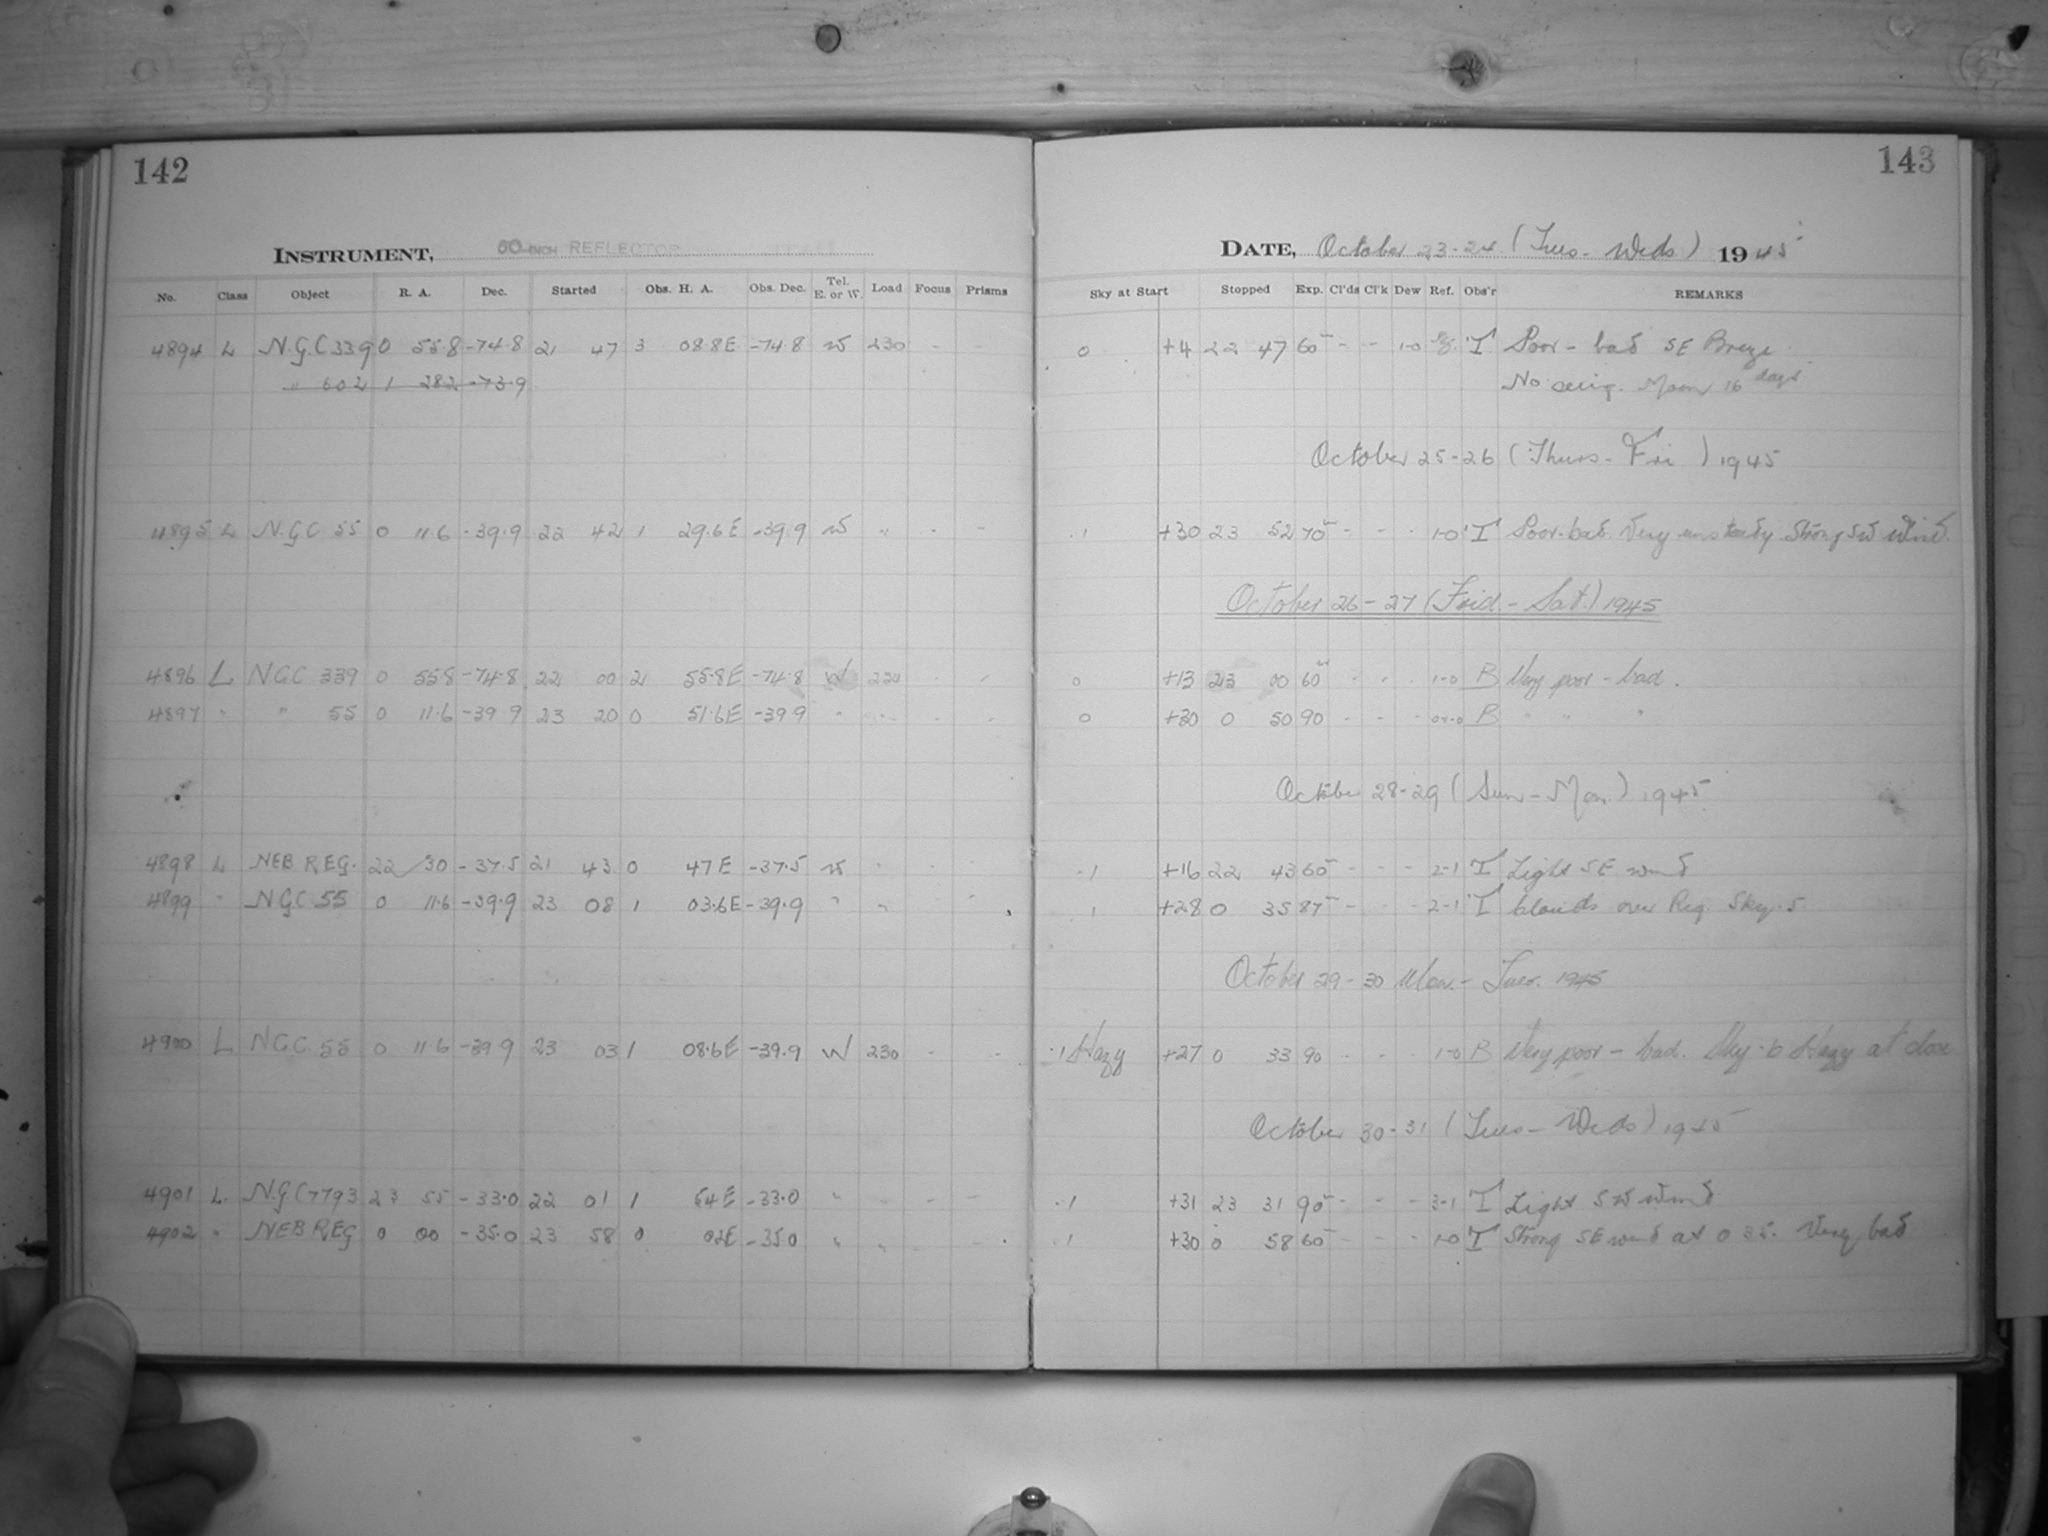 142
INSTRUMENT, 60-INCH REFLECTOR
No. Class Object R. A. Dec. Started Obs. H. A. Obs. Dec. Tel. E. or W. Load Focus Prisms
4894 L N.G.C 339 0 55.8 -74.8 21 47 3 08.8E -74.8 W 230 - -
" 602 1 28.2 -73.9
4895 L N.G.C 55 0 11.6 -39.9 22 42 1 29.6E -39.9 W " - -
4896 L NGC 339 0 55.8 -74.8 22 00 2 55.8E -74.8 W 230 - -
4897 " " 55 0 11.6 -39.9 23 20 0 51.6E -39.9 " - -
4898 L NEB REG. 22 30 -37.5 21 43 0 47E -37.5 W " - -
4899 " NGC 55 0 11.6 -39.9 23 08 1 03.6E -39.9 " " -
4900 L NGC 55 0 11.6 -39.9 23 03 1 08.6E -39.9 W 230 - -
4901 L. N.G.C 7793 23 55 -33.0 22 01 1 54E -33.0 " " - -
4902 " NEB REG 0 00 -35.0 23 58 0 02E -35.0 " " - -
143
DATE, October 23-24 (Tues - Weds) 1945
Sky at Start Stopped Exp. Cl'ds Cl'k Dew Ref. Obs'r REMARKS
0 +4 22 47 60 - - 1-0 T Poor - bad SE Breeze
No seeing. Moon 16 days
October 25-26 (Thurs - Fri) 1945
.1 +30 23 52 70 - - - 1-0 T Poor-bad. Very unsteady. Strong SW Wind.
October 26-27 (Frid. - Sat.) 1945
0 +13 23 00 60 - - - 1-0 B Very poor - bad.
0 +30 0 50 90 - - - B " " "
October 28-29 (Sun - Mon.) 1945
.1 +16 22 43 60 - - - 2-1 T Light SE wind
.1 +28 0 35 87 - - - 2-1 T Clouds over Reg. Sky .5
October 29-30 Mon. - Tues. 1945
.1 Hazy +27 0 33 90 - - - 1-0 B Very poor - bad. Sky .6 Hazy at close
October 30-31 (Tues - Weds) 1945
.1 +31 23 31 90 - - - 3-1 T Light SW wind
.1 +30 0 58 60 - - - 1-0 T Strong SE wind at 0 35. Very bad